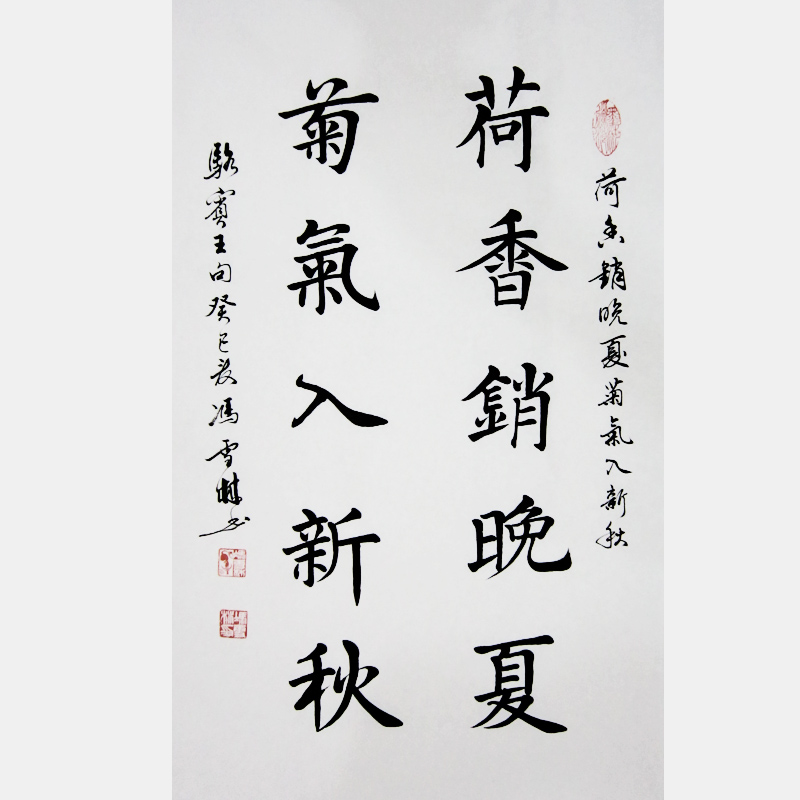 荷香銷晚夏菊氣入新秋
荷香銷晚夏
菊氣入新秋
駱賓王句癸巳年馮雪林書